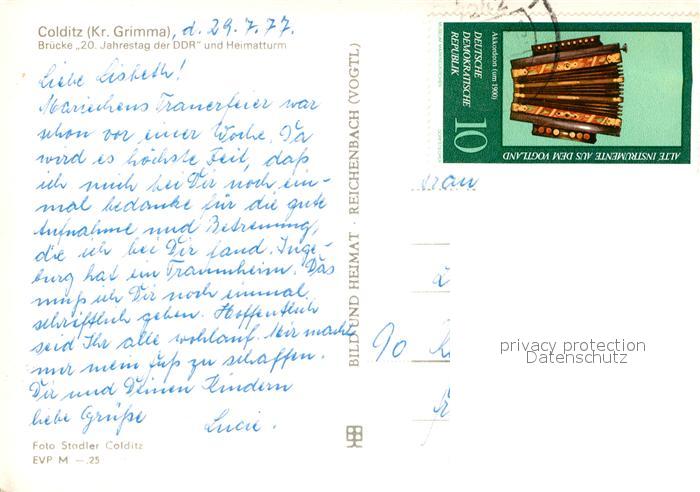 Colditz (Kr. Grimma), d. 29.7.77.
Brücke „20. Jahrestag der DDR" und Heimatturm
Liebe Lisbeth!
Mariechens Trauerfeier war
schon vor einer Woche. Da
wird es höchste Zeit, daß
ich mich bei Dir noch ein-
mal bedanke für die gute
Aufnahme und Betreuung,
die ich bei Dir fand. Inge-
burg hat ein Traumheim. Das
muß ich Dir noch einmal
schriftlich geben. Hoffentlich
seid Ihr alle wohlauf. Mir macht
nur mein Fuß zu schaffen.
Dir und Deinen Kindern
liebe Grüße Lucie.
Foto Stadler Colditz
EVP M —.25
BILD UND HEIMAT · REICHENBACH (VOGTL)
Akkordeon (um 1900)
DEUTSCHE
DEMOKRATISCHE
REPUBLIK
10
ALTE INSTRUMENTE AUS DEM VOGTLAND
Frau
privacy protection
Datenschutz